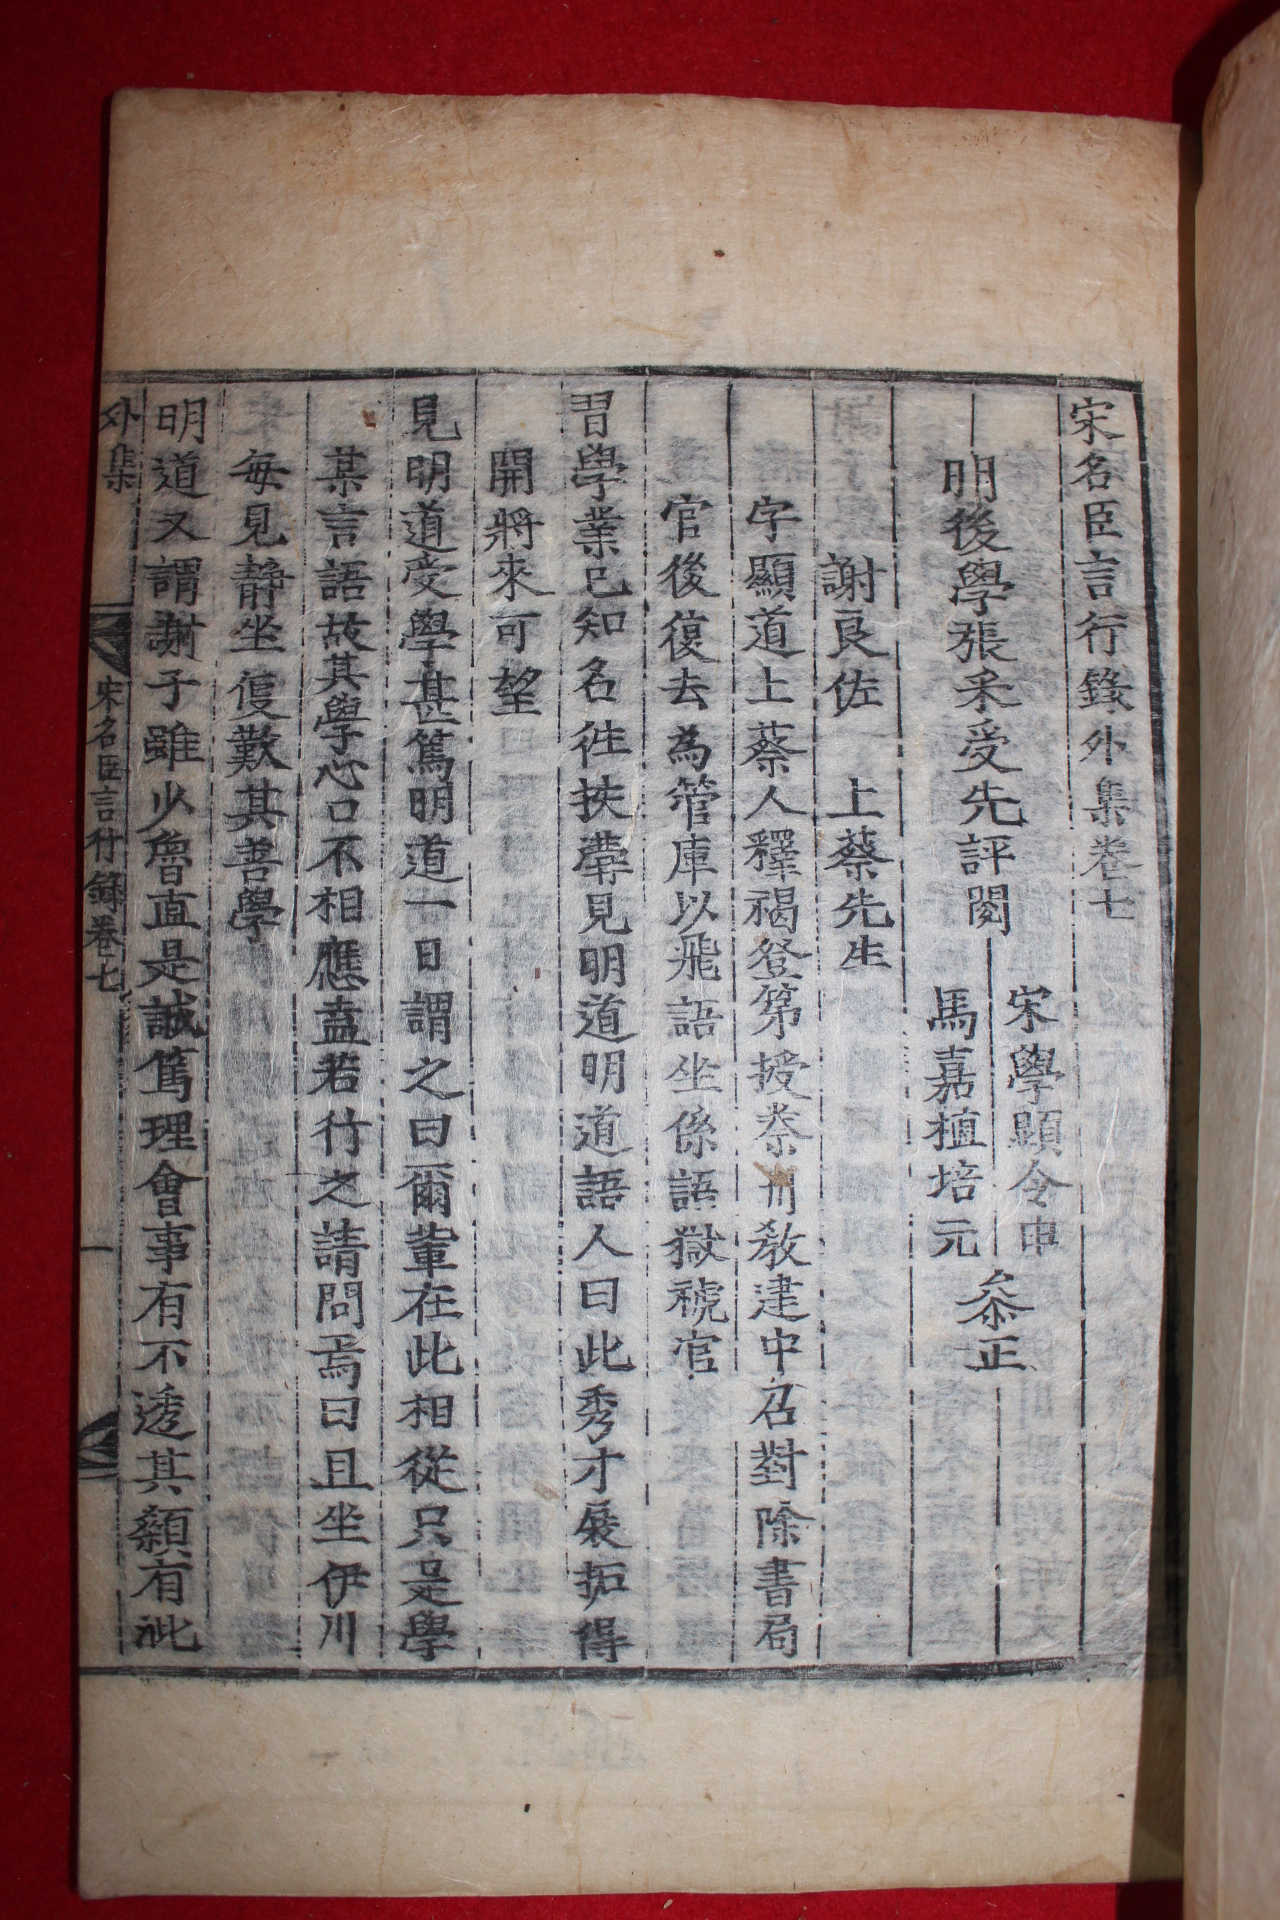 宋名臣言行錄外集卷七
明後學張采受先評閱
宋學顯令申
馬嘉植培元
叅正
謝良佐　上蔡先生
字顯道上蔡人釋褐登第授秦州教建中召對除書局
官後復去為管庫以飛語坐係語獄褫官
習學業已知名徃扶溝見明道明道語人曰此秀才展拓得
開將來可望
見明道受學甚篤明道一日謂之曰爾輩在此相從只是學
某言語故其學心口不相應盍若行之請問焉曰且坐伊川
每見靜坐便歎其善學
明道又謂謝子雖少魯直是誠篤理會事有不透其顙有泚
外集
宋名臣言行錄卷七
一